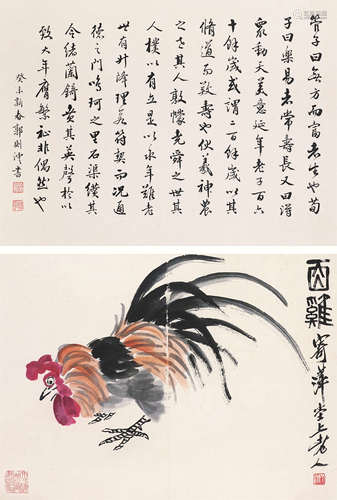 管子曰無方而富者生也荀
子曰樂易者常壽長又曰得
衆動天美意延年老子百六
十餘歲或謂二百餘歲以其
脩道而致壽也伏羲神農
之其人敦懞堯舜之世其
人樸以有以永年難老
世有升降理若符契而況通
德之門鳴珂之里石渠纘其
令緒蘭錡貴其英聲於以
致大年膺繁祉非偶然也
癸未新春鄭剛書
雞
寄萍堂上老人